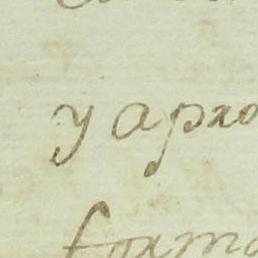 y apro
forma